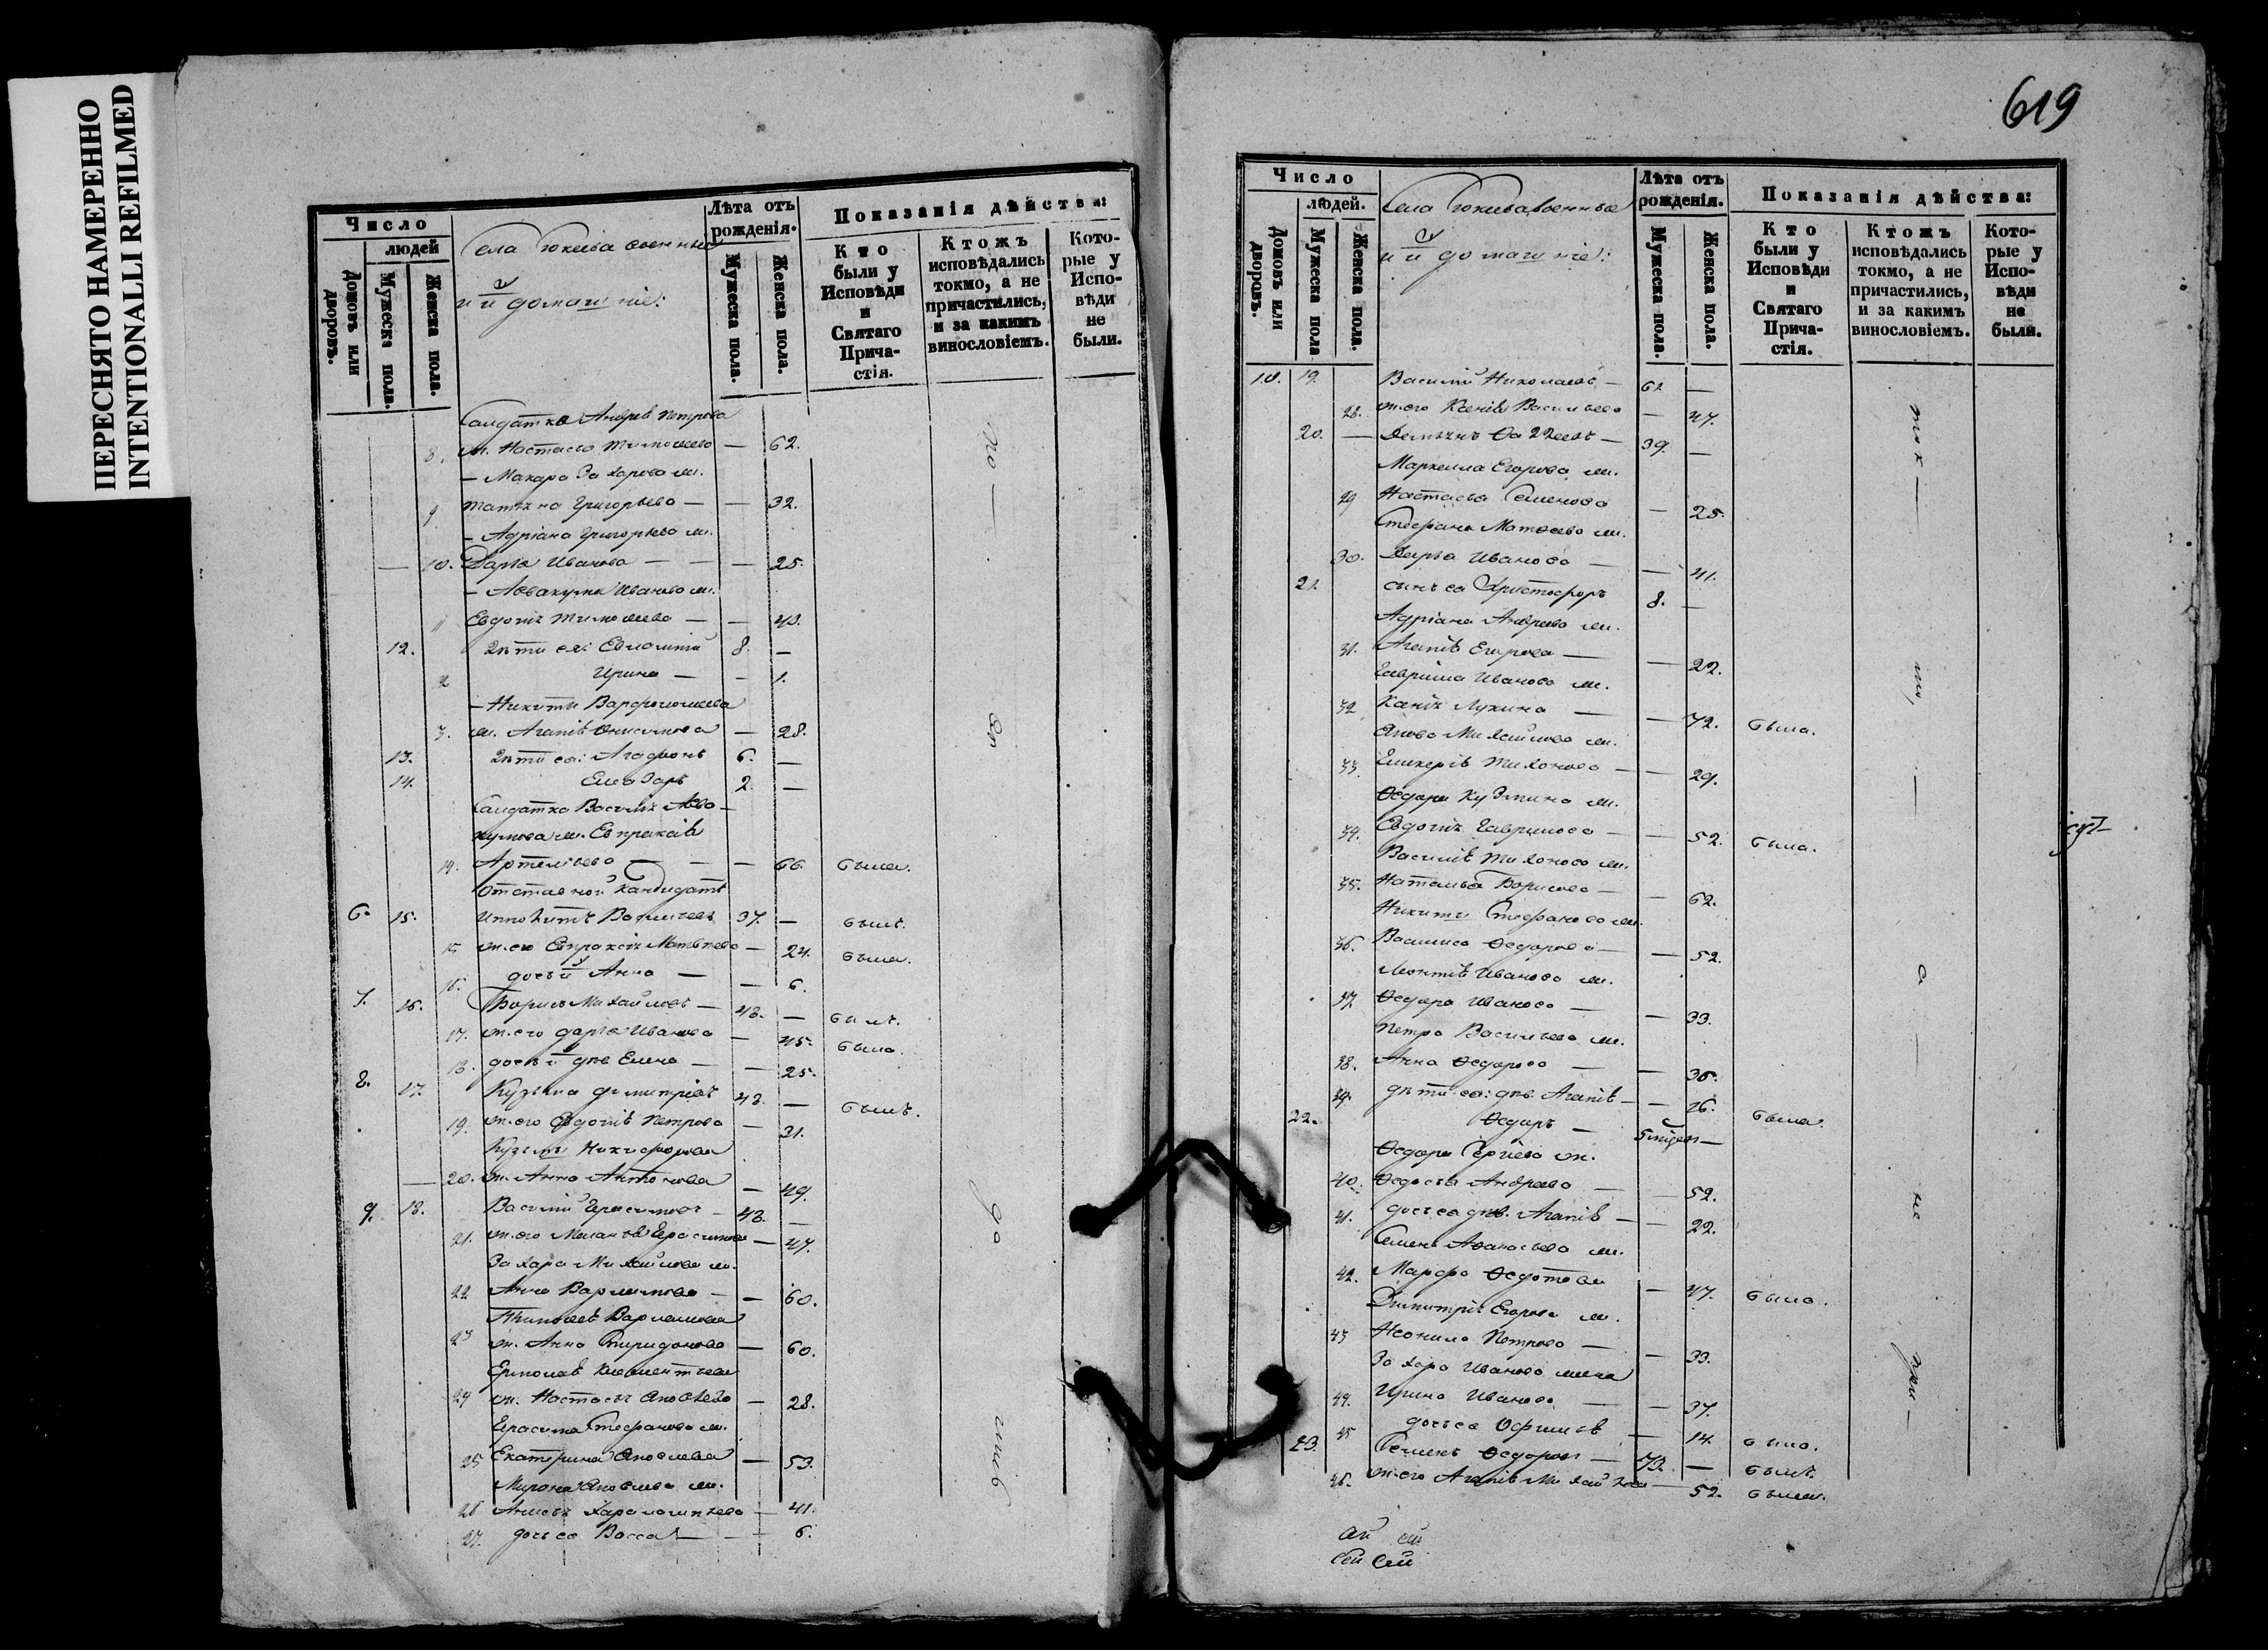 ПЕРЕСНЯТО НАМЕРЕННО
INTENTIONALLI REFILMED
Число
людей
Домовъ или дворовъ.
Мужеска пола.
Женска пола.
Села военные
и домашніе:
Лѣта отъ рожденія.
Мужеска пола.
Женска пола.
Показанія дѣйства:
Кто были у Исповѣди и Святаго Причастія.
Ктожъ исповѣдались токмо, а не причастились, и за какимъ винословіемъ.
Которые у Исповѣди не были.
Солдатка Андрея Петрова
8. ж. Настасья Тимофеева — 62.
— Макара Захарова ж.
9 Татьяна Григорьева — — 32.
— Адріана Григорьева ж.
— 10. Дарья Иванова — — 25.
— Аввакума Иванова ж.
11 Евдокия Тимофеева — — 40.
12. дѣти ея: Евлампий 8. —
2 Ирина — — 1.
— Никиты Варфоломеева
3. ж. Агапія Онисимова — 28.
13. дѣти ея: Агафонъ 6. —
14. Елеазаръ 2. —
Солдатка Василия Авва-
кумова ж. Евпраксія
14. Артемьева — — 66. была.
Отставной кандидатъ
6. 15. Ипполитъ Васильевъ 37. — былъ.
15 ж. его Евпраксія Матвеева — 24. была.
16. дочь Анна — — 6.
7. 16. Борисъ Михайловъ — 48. — былъ.
17. ж. его Дарья Иванова — 45. была.
18. дочь дѣв. Елена — — 25.
8. 17. Кузьма Димитріевъ 48. — былъ.
19. ж. его Евдокія Петрова — 31.
Кузьмы Никифорова
— 20. ж. Анна Антонова — 49.
9. 18. Василій Герасимовъ — 48. —
21. ж. его Меланья Герасимова — 47.
Захара Михайлова ж.
22 Анна Варламова — — 60.
Тимофея Варламова
23 ж. Анна Спиридонова — 60.
Ермолая Клементьева
24 ж. Настасья Яковлева — 28.
Герасима Стефанова ж.
25 Екатерина Яковлева — 53.
Мирона Яковлева ж.
26 Анисья Харлампиева — 41.
27. дочь ея Васса — — 6.
619
Число
людей.
Домовъ или дворовъ.
Мужеска пола
Женска пола.
Села военные
и домашніе:
Лѣта отъ рожденія.
Мужеска пола.
Женска пола.
Показанія дѣйства:
Кто были у Исповѣди и Святаго Причастія.
Ктожъ исповѣдались токмо, а не причастились, и за какимъ винословіемъ.
Которые у Исповѣди не были.
10. 19. Василій Николаевъ — 61 —
28. ж. его Ксенія Васильева — 47.
20. — Демьянъ 39. —
Маркелла Егорова ж.
29 Настасья Семенова — 25.
Стефана Матвеева ж.
30. Дарья Иванова — — 41.
21. сынъ ея Христофоръ 8. —
Адріана Андреева ж.
31. Агапія Егорова — — 22.
Гавриила Иванова ж.
32 Ксенія Лукина — — 72. была.
Якова Михайлова ж.
33. Гликерія Тихонова — — 29.
Ѳедора Кузьмина ж.
34. Евдокія Гаврилова — — 52. была.
Василія Тихонова ж.
35. Наталья Борисова — — 62.
Никиты Стефанова ж.
36. Василиса Ѳедорова — — 52.
Леонтія Иванова ж.
37. Ѳедора Иванова — — 33.
Петра Васильева ж.
38. Анна Ѳедорова — — 36.
39. дѣти ея: дѣв. Агапія — — 16. была.
22. Ѳедоръ —
Ѳедора Сергѣева ж.
40. Ѳедосья Андреева — — 52.
41. дочь ея дѣв. Агапія — — 22.
Семена Афанасьева ж.
42. Марфа Ѳедотова — 47. была.
Димитрія Егорова ж.
43 Неонила Петрова — — 33.
Захара Иванова жена
44. Ирина Иванова — — 37.
45 дочь ея Офимія — 14. была.
23. Семенъ Ѳедоровъ — 73. — былъ.
46. ж. его Агапія Михайлова — 52. была.